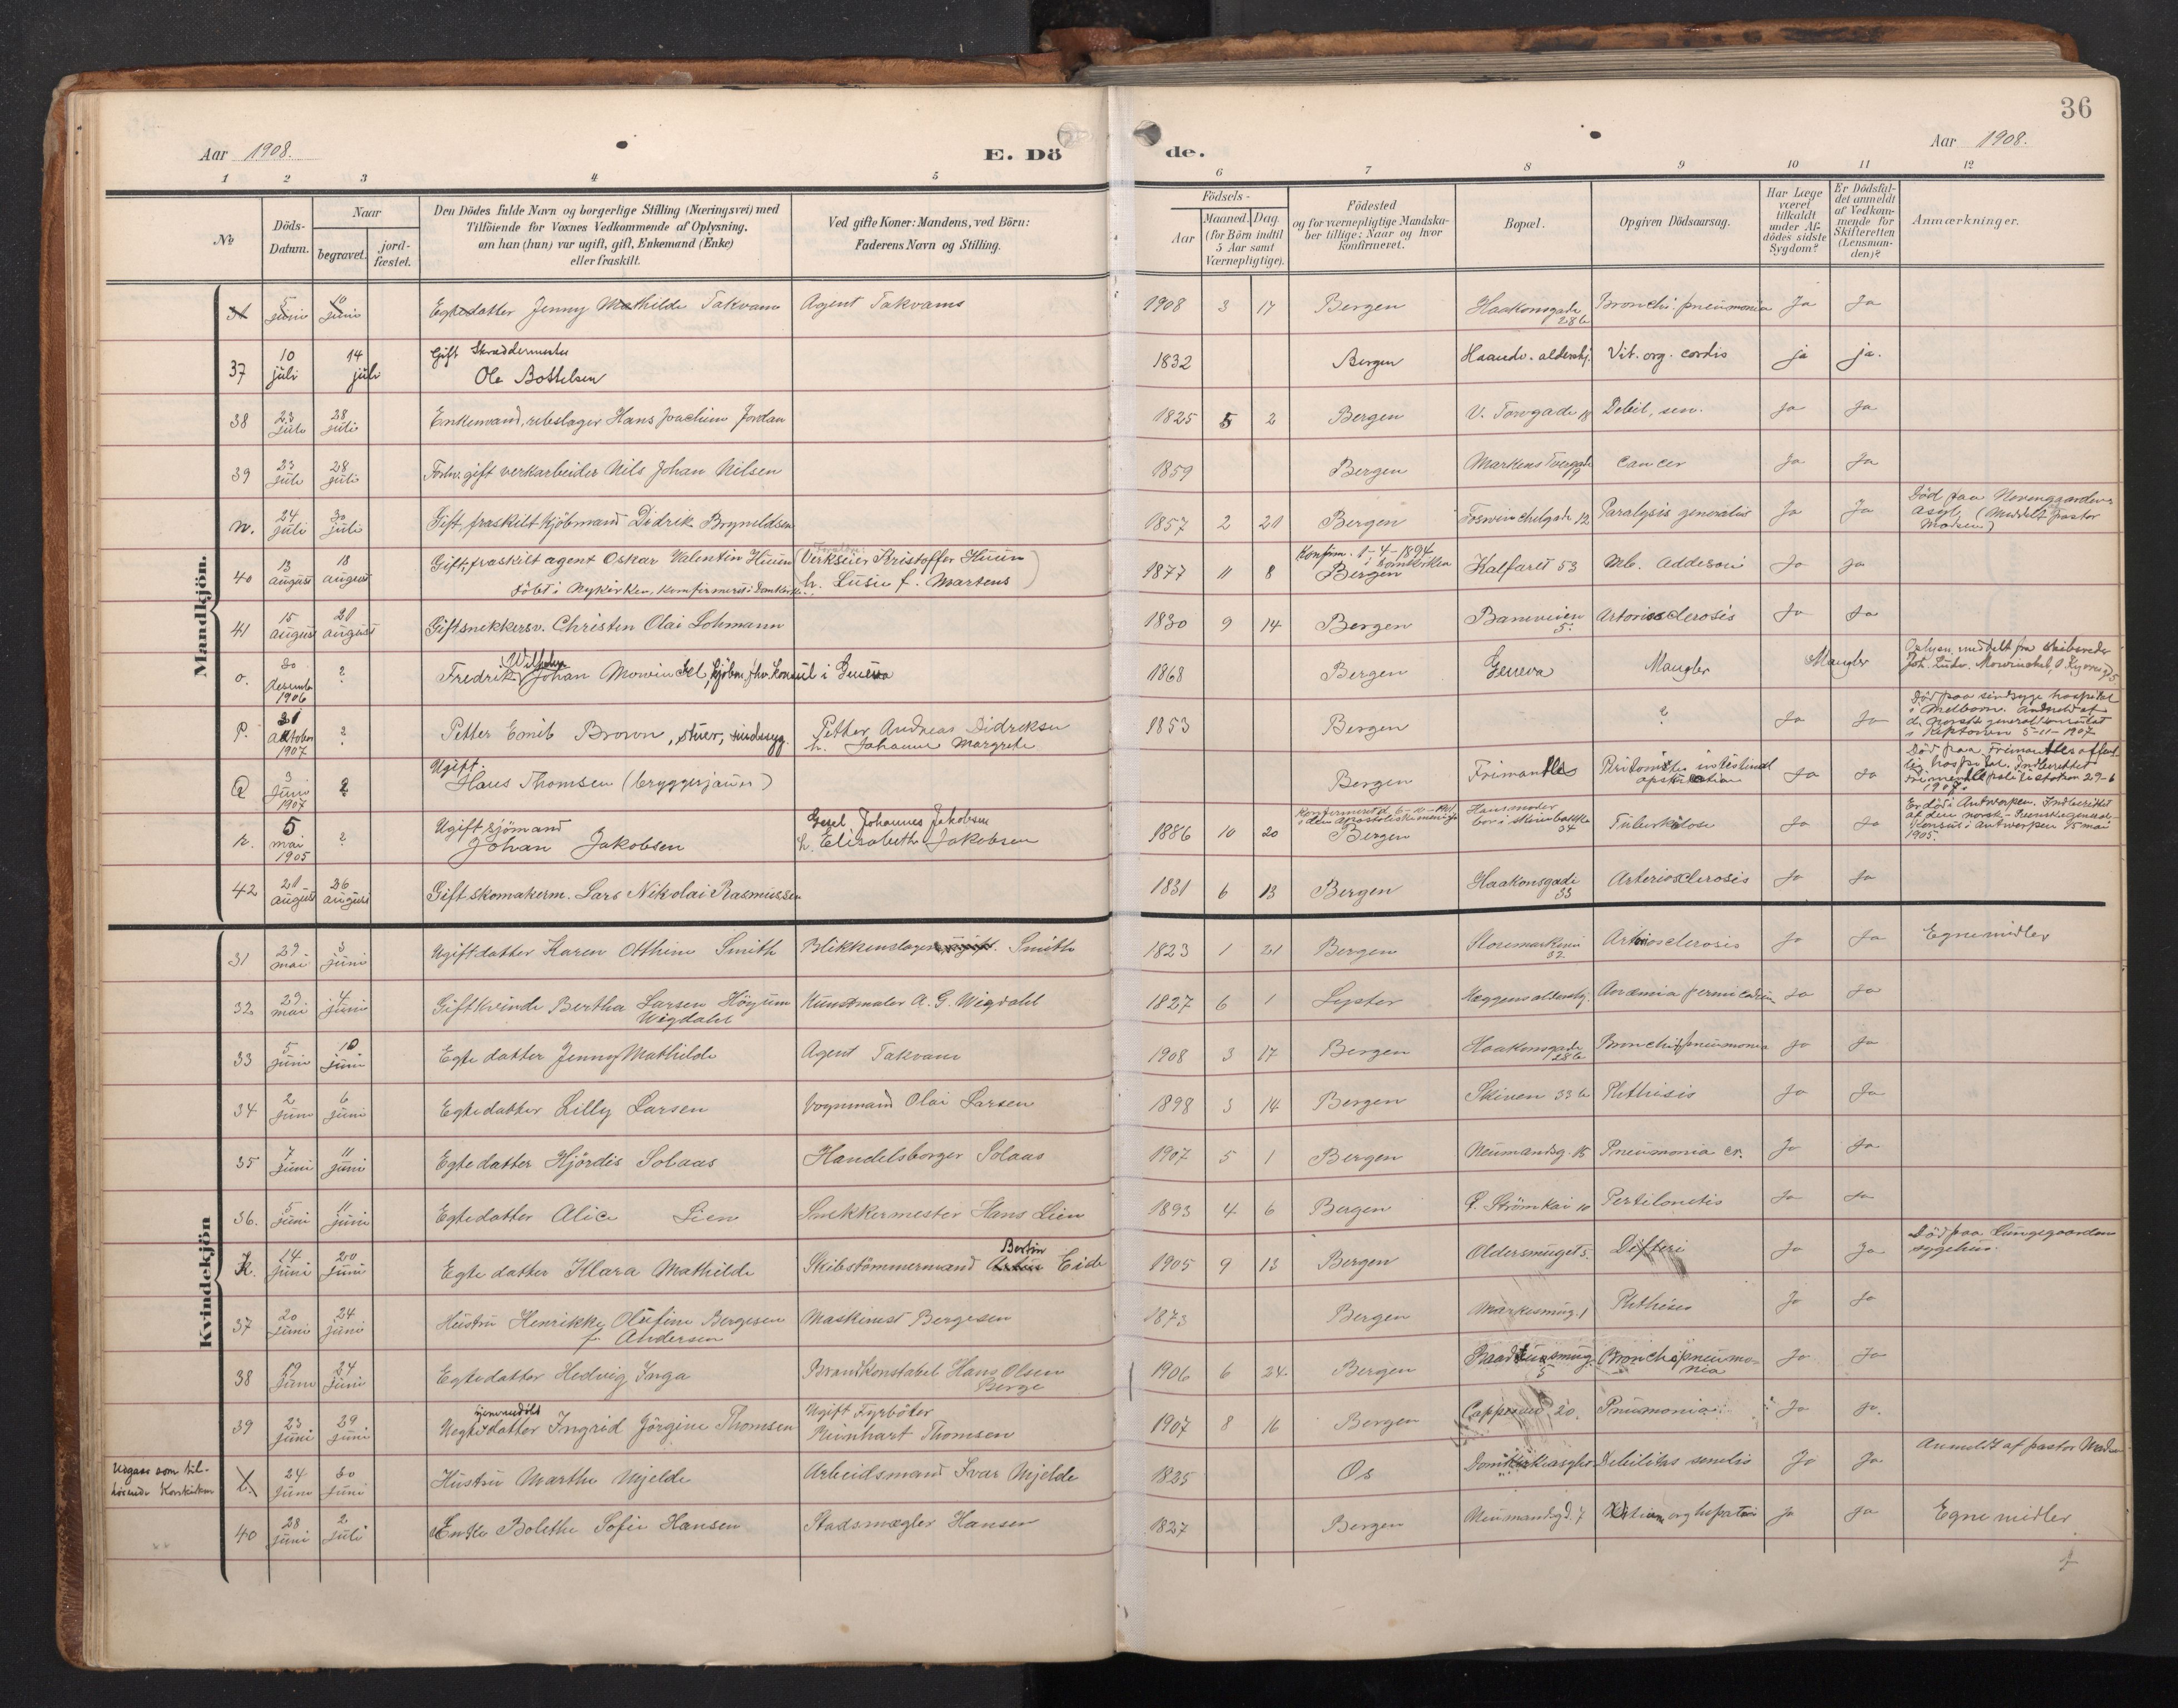 36
Aar 1908.
E. Dö de.
Aar 1908.
1 2 3 4 5 6 7 8 9 10 11 12
No
Döds-Datum.
Naar
begravet.
jord-fæstet.
Den Dödes fulde Navn og borgerlige Stilling (Næringsvei) med
Tilföiende for Voxnes Vedkommende af Oplysning,
om han (hun) var ugift, gift, Enkemand (Enke)
eller fraskilt.
Ved gifte Koner: Mandens, ved Börn:
Faderens Navn og Stilling.
Födsels-
Aar
Maaned. Dag.
(for Börn indtil
5 Aar samt
Værnepligtige).
Födested
og for værnepligtige Mandska-
ber tillige: Naar og hvor
konfirmeret.
Bopæl.
Opgiven Dödsaarsag.
Har Læge
været
tilkaldt
under Af-
dödes sidste
Sygdom?
Er Dödsfal-
det anmeldt
af Vedkom-
mende for
Skifteretten
(Lensman-
den)?
Anmærkninger.
Mandkjön.
5 juni 10 juni Egtedatter Jenny Mathilde Takvam Agent Takvams 1908 3 17 Bergen Haakonsgade 28b Bronchi.pneumonia Ja Ja
37 10 juli 14 juli Gift Skræddermester
Ole Bottelsen 1832 Bergen Haandv. aldershj. Vit. org. cordis ja ja.
38 23 juli 28 juli Enkemand, rebslager Hans Joachim Jordan 1825 5 2 Bergen V. Torvgade 18 Debil. sen. Ja Ja
39 23 juli 28 juli Forhv. gift verkarbeider Nils Johan Nilsen 1859 Bergen Markens Tvergade 9 Cancer Ja Ja
n. 24 juli 30 juli Gift, fraskilt Kjöbmand Didrik Bryneldsen 1857 2 21 Bergen 12 Paralysis generalis Ja Ja Död paa Nevengaardens
Asyl (Meddelt Pastor
Madsen)
40 13 august 18 august Gift, fraskilt agent Oskar Valentin Huun (Verkseier Kristoffer Huun
Föbt i Nykirken, konfirmeret i Domkirken h. Lusie f. Martens) 1877 11 8 Konfirm. 1-4-1894
i Domkirken
Bergen Kalfaret 53 Mb. Addesoni Ja Ja
41 15 august 20 august Gift snekkersv. Christen Olai Lohmann 1830 9 14 Bergen Baneveien 5. Artoriosclerosis Ja Ja
o. 20 desember 1906 ? Fredrik Wilhelm Johan Mowinckel, Kjöbm. fhv. Konsul i Geneva 1868 Bergen Geneva Mangler Mangler Oplysn. meddelt fra Skibsreder
Joh. Ludv. Mowinckel,
P. 21 oktober 1907 ? Petter Emil Brown, stuer, sindssyg. Petter Andreas Didreksen
h. Johanne Margrete 1853 Bergen ? Ja Ja Död paa sindsyge hospital
i Melborn. Anmeldt af
d. norske generalkonsulat
5-11-1907
Q 3 juni 1907 ? Ugift.
Hans Thomsen (bryggesjauer) Bergen Frimantles Ja Ja Död paa Frimantles offent-
lig hospital. Indberettet
politistation 29-6
1907.
r. 5 mai 1905 ? Ugift sjömand
Johan Jakobsen Gesel Johannes Jakobsen
h. Elisabeth Jakobsen 1886 10 20
i den Apostoliske menighed
Bergen Hans moder
bor i Skivebakken
34 Tuberkulose Ja Ja Er död i Antwerpen. Indberettet
af den norsk-svenske general-
Konsul i Antwerpen 15 mai
1905.
42 21 august 26 august Gift skomakerm. Lars Nikolai Rasmussen 1831 6 13 Bergen Haakonsgade 33 Arteriosclerosis Ja Ja
Kvindekjön
31 29 mai 3 juni Ugift datter Karen Otthine Smith Blikkenslager Smith 1823 1 21 Bergen Storemarkevei 32 Arteriosclerosis Ja Ja Egne midler
32 29 mai 4 juni Gift kvinde Bertha Larsen Höyum
Wigdahl Kunstmaler A. G. Wigdahl 1827 6 1 Lyster Heggens aldershj. Anæmia perniciosa Ja Ja
33 5 juni 10 juni Egte datter Jenny Mathilde Agent Takvam 1908 3 17 Bergen Haakonsgade 28b Bronchitpneumonia Ja Ja
34 2 juni 6 juni Egte datter Lilly Larsen Vognmand Olai Larsen 1898 3 14 Bergen Skiven 33b Phthisis Ja Ja
35 7 juni 11 juni Egte datter Hjördis Solaas Handelsborger Solaas 1907 5 1 Bergen Neumandsg. 15 Pneumonia cr. Ja Ja
36. 5 juni 11 juni Egte datter Alice Lien Snekkermester Hans Lien 1893 4 6 Bergen L. Strömkai 10 Peritonitis Ja Ja
K. 14 juni 20 juni Egte datter Klara Mathilde Skibstömmermand Bertin Eide 1905 9 13 Bergen Oldersmuget 5. Difteri Ja Ja Död paa Lungegaardens
sygehus.
37 20 juni 24 juni Hustru Henrikke Olufine Bergesen
f. Andersen Maskinist Bergesen 1873 Bergen Markesmug. 1 Phthisis Ja Ja
38 19 juni 24 juni Egte datter Hedvig Inga Brandkonstabel Hans Olsen
Berge 1906 6 24. Bergen Raadstusmug. 5 Bronchipneumo-
nia Ja Ja
39 23 juni 29 juni Uegte datter Ingrid Jörgine Thomsen Ugift Fyrböter
Reinhart Thomsen 1907 8 16 Bergen 20. Pneumonia Ja Ja.
Utgaar som til-
hörende Korskirken L. 24 juni 30 juni Hustru Marthe Mjelde Arbeidsmand Ivar Mjelde 1825 Os Domkirkeasyl Debilitas senilis Ja Ja Anmeldt af pastor Madsen
40 28 juni 2 juli Enke Bolethe Sofie Hansen Stadsmægler Hansen 1827 Bergen Neumandsgd. 7 Vitium org hepatis Ja Ja Egne midler